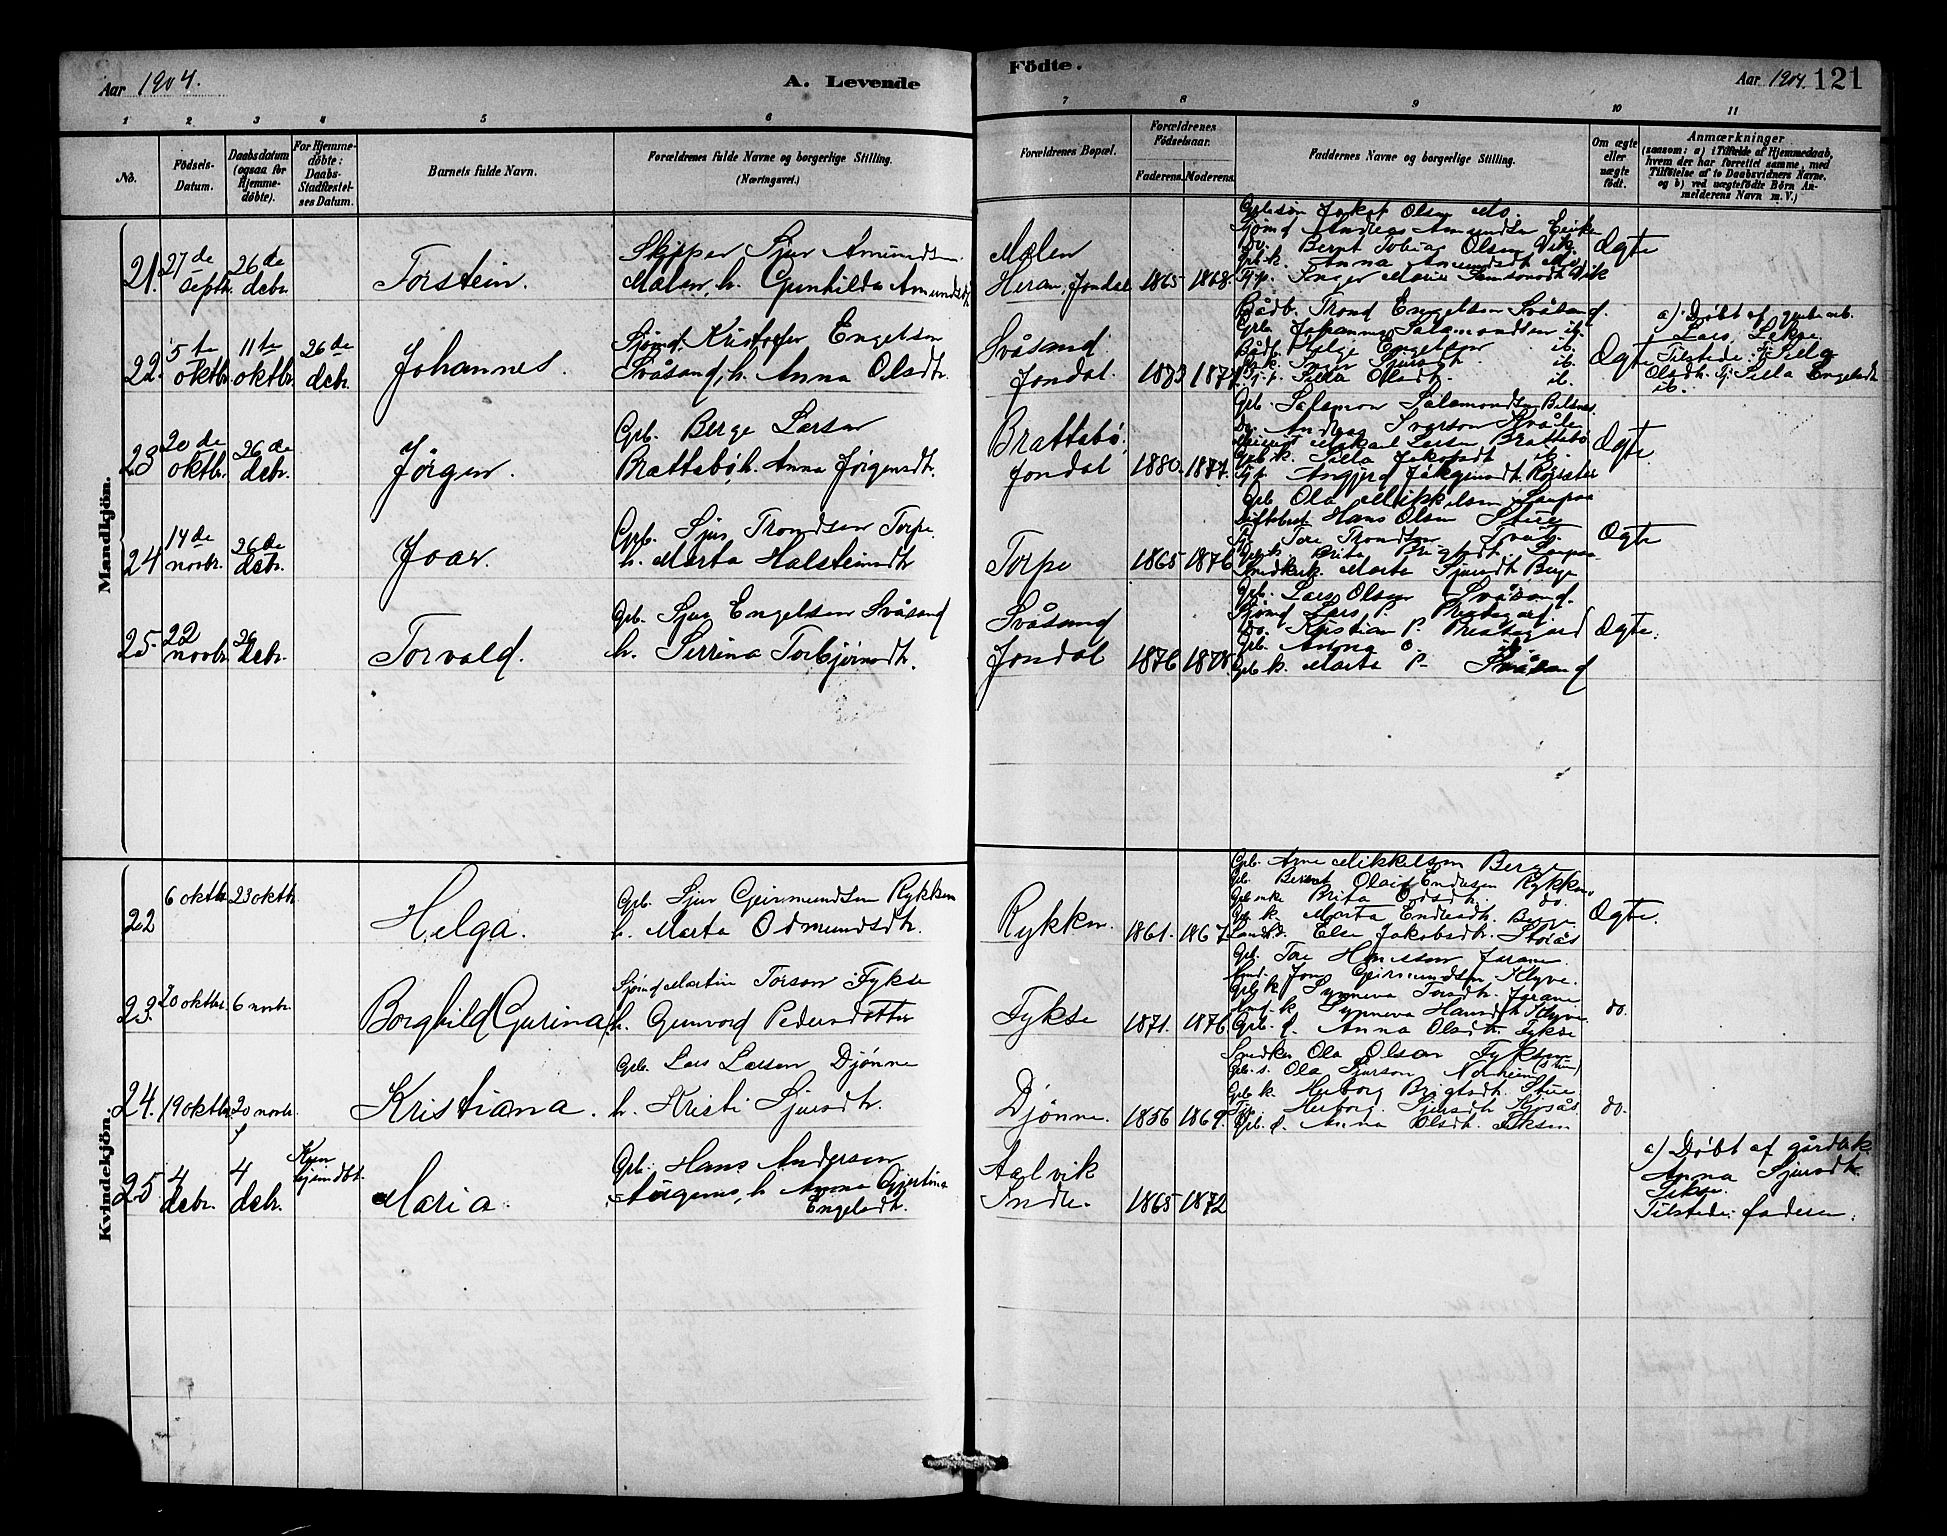 Aar 1904.
A. Levende
Födte.
Aar 1904. 121
1 2 3 4 5 6 7 8 9 10 11
No.
Födsels-
Datum.
Daabsdatum
(ogsaa for
Hjemme-
döbte).
For Hjemme-
döbte:
Daabs-
Stadfæstel-
ses Datum.
Barnets fulde Navn.
Forældrenes fulde Navne og borgerlige Stilling.
(Næringsvei.)
Forældrenes Bopæl.
Forældrenes
Födselsaar.
Faderens. Moderens.
Faddernes Navne og borgerlige Stilling.
Om ægte
eller
uægte
födt.
Anmærkninger
(saasom: a) i Tilfælde af Hjemmedaab,
hvem der har forrettet samme, med
Tilföielse af to Daabsvidners Navne,
og b) ved uægtefödte Börn An-
melderens Navn m. V.)
Mandkjön.
21. 27de septbr. 26de debr. Torstein.
Skipper Sjur Amundsen
Malen, h. Gunhilda Amundsdt.
Malen
Heran, Jondal 1865 1868.
Jakob Olsen Mo.
Sjömd Andreas Amundsen
Do. Bernt Tobias Olsen Vik
Gbk. Anna Amundsdt. Mo
Tjp. Inger Marie Samsonsdt. Vik
Ægte
22. 5te oktbr. 11te oktbr. 26de debr. Johannes.
Sjömd. Kristofer Engelsen
Svåsand, h. Anna Olsdtr.
Svåsand
Jondal. 1883
Bådb. Trond Engelsen Svåsand.
Grb. Johannes Salamondsen ib.
Bådb. Helge Engelsen ib.
Sjursdt. ib.
Silla Olsdt. ib.
Ægte
a) Döbt af
Lars Lekve
Tilstede: Silla
Olsdt. Silla Engelsdt.
ib.
23 20de oktbr. 26de debr. Jörgen.
Grb. Berge Larsen
Brattabö, h. Anna Jörgensdt.
Brattabö.
Jondal 1880. 1877.
Grb. Salamon Salamondsen
Do. Andreas Iverson
Mikael Larsen Brattabö
Grbk. Silla Jakobsdt. ib.
Ægte.
24 14de novbr. 26de debr. Joar.
Grb. Sjur Trondsen Torpe
h. Marta Halsteinsdt.
Torpe 1865 1876
Grb Ola Mikkelsen
Hans Olsen
Tore Trondsen
Brita Brigtsdt.
Snedkerk. Marta Sjursdt. Berge
Ægte
25. 22 novbr. 26 debr. Torvald.
Grb. Sjur Engelsen Svåsand
h. Serina Torbjörnsdt.
Svåsand
Jondal 1876 1878.
Grb. Lars Olsen Svåsand.
Sjömd Lars P. Prestegard
Do. Kristian P. Prestegård
Grb. Anna O. ib.
Grb. k. Marta P. Svåsand
Ægte.
Kvindekjön.
22 6 oktbr. 23 oktbr. Helga.
Grb. Sjur Geirmundsen Rykken
h. Marta Odmundsdtr.
Rykken. 1861. 1867
Grb. Arne Mikkelsen Berge
Grb. Bernt Olaif Endresen Rykken.
Brita Oddsdt. do.
Grb. k. Marta Endresdt. Berge
Else Jakobsdt.
Ægte.
23. 20 oktbr. 6 novbr. Borghild Gurina.
Sjömd Martin Torson Fykse
h. Gunvord Pedersdatter
Fykse 1871. 1876.
Grb. Tore Hansson Jarane.
Jon Geirmundsen Klyve.
Grb. k. Synneva Torsdt. Jarane
Synneva Hansdt. Klyve
Grb. d. Anna Olsdt. Fykse
do.
24. 19 oktbr. 20 novbr. Kristiana.
Grb. Lars Larsen Djönne
h. Kristi Sjursdtr.
Djönne. 1856 1869.
Snedker Ola Olson Fyksen
Grb. s. Ola Sjurson Norheim
Grb. k. Herborg Brigtsdt.
Herborg Sjursdt.
Grb. d. Anna Olsdt. Fyksen
do.
25 4 debr. 4 debr. Kun hjemdbt. Maria.
Grb. Hans Andersen
h. Anna Gjertina
Engelsdt.
Aalvik
Indre. 1865 1872
a) Döbt af gårdbk.
Anna Sjursdtr.
Lekve.
Tilstede: faderen.